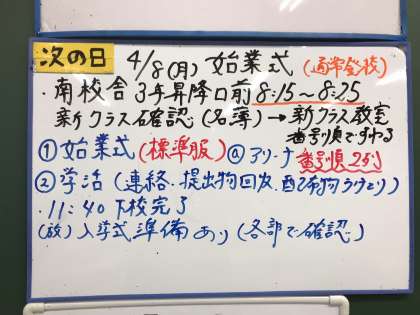 次の日 4/8(月) 始業式 (通常登校)
・南校舎3年昇降口前 8:15〜8:25
新クラス確認(名簿)→新クラス教室
番号順ですわる
①始業式(標準服) @アリーナ 番号順2列
②学活(連絡、提出物回収、配布物うけとり)
・11:40下校完了
(放)入学式準備あり(各部で確認)